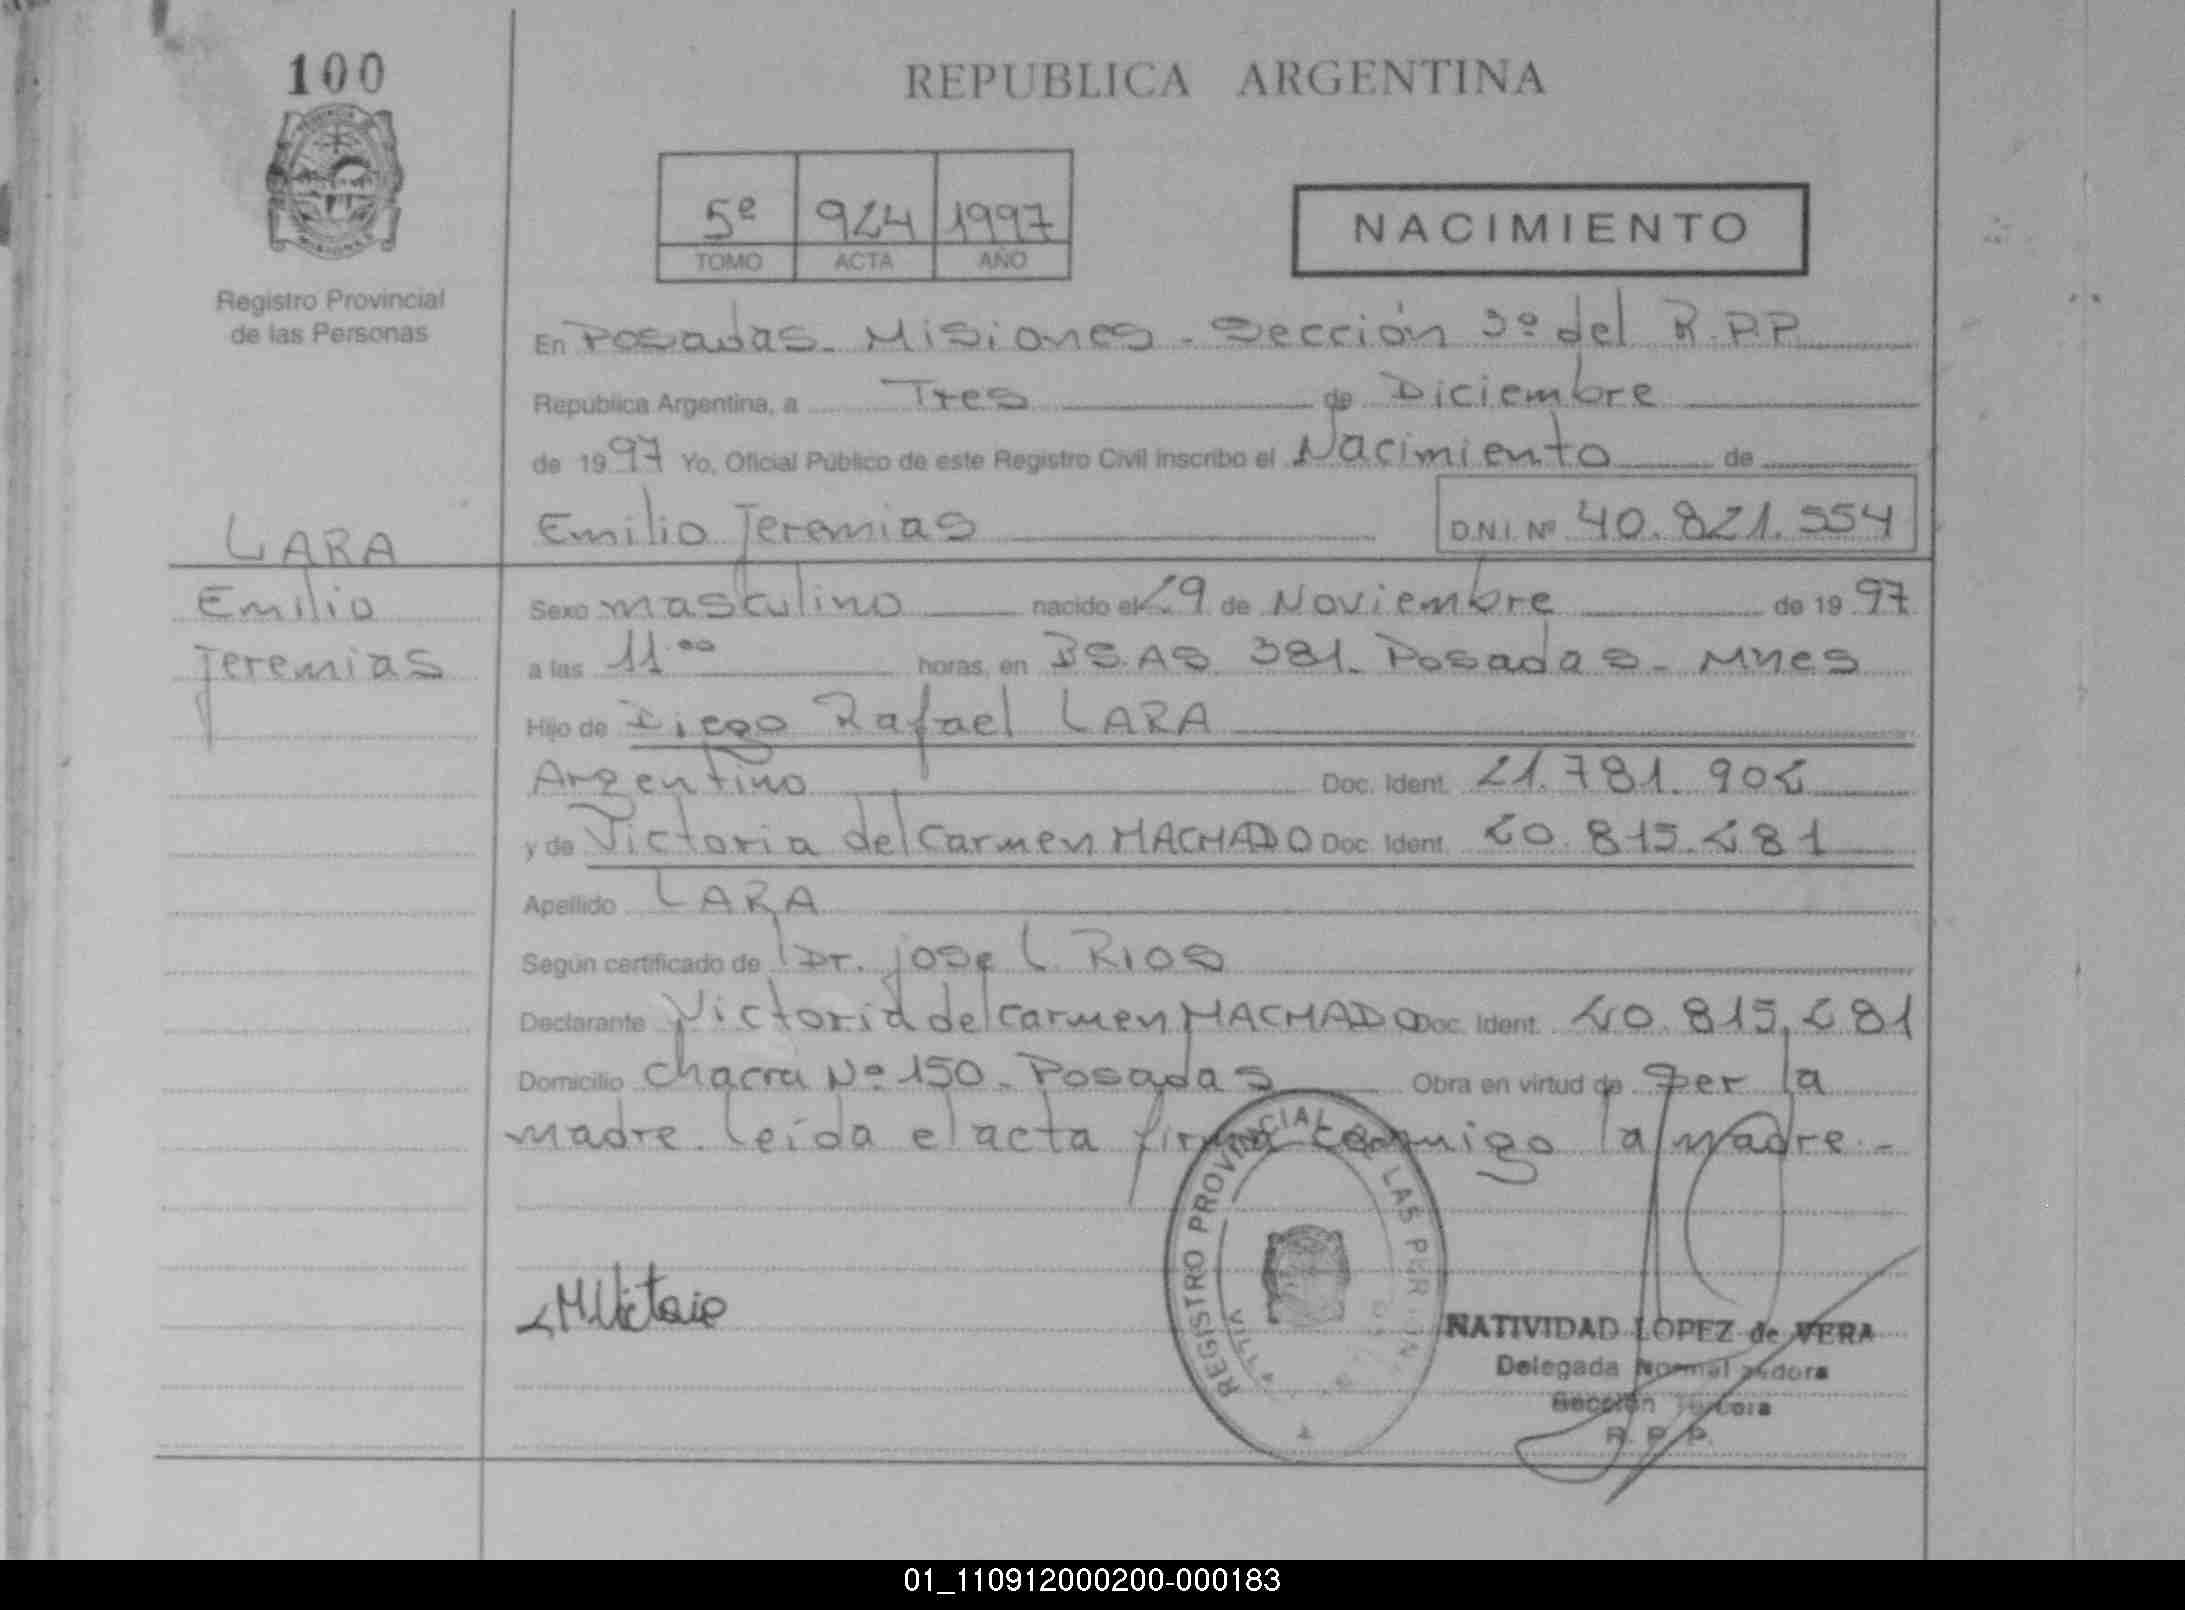 100
REPUBLICA ARGENTINA
5º 924 1997
TOMO ACTA AÑO
NACIMIENTO
Registro Provincial
de las Personas
En Posadas. Misiones. Sección 3º del R.P.P.
República Argentina, a Tres de Diciembre
de 1997 Yo, Oficial Público de este Registro Civil inscribo el Nacimiento de
LARA
Emilio Jeremias D.N.I. Nº 40.821.554
Emilio
Jeremias
Sexo masculino nacido el 29 de Noviembre de 1997
a las 11.00 horas, en BS.AS 381. Posadas - Mnes
Hijo de Diego Rafael LARA
Argentino Doc. Ident. 21.781.902
y de Victoria del Carmen MACHADO Doc. Ident. 20.815.281
Apellido LARA
Según certificado de Dr. José L. RIOS
Declarante Victoria del Carmen MACHADO Doc. Ident. 20.815.281
Domicilio Chacra Nº 150. Posadas Obra en virtud de Ser la
madre. Leída el acta firma conmigo la madre.-
REGISTRO PROVINCIAL DE LAS PER
NATIVIDAD LOPEZ de VERA
Delegada Normalizadora
Sección Tercera
R. P. P.
01_110912000200-000183